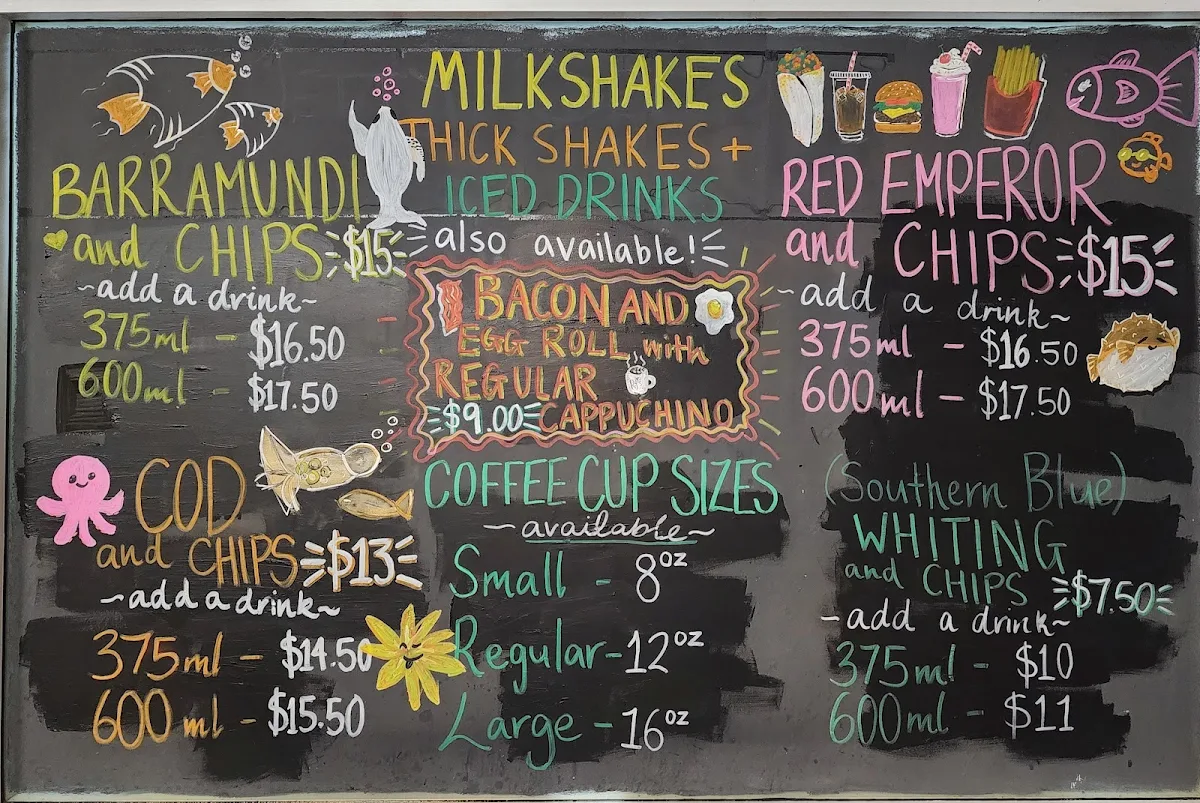 MILKSHAKES
THICK SHAKES +
ICED DRINKS
also available!
BARRAMUNDI
and CHIPS $15
~add a drink~
375ml - $16.50
600ml - $17.50
COD
and CHIPS $13
~add a drink~
375ml - $14.50
600ml - $15.50
BACON AND
EGG ROLL with
REGULAR
$9.00 CAPPUCHINO
COFFEE CUP SIZES
~available~
Small - 8oz
Regular - 12oz
Large - 16oz
RED EMPEROR
and CHIPS $15
~add a drink~
375ml - $16.50
600ml - $17.50
(Southern Blue)
WHITING
and CHIPS $7.50
~add a drink~
375ml - $10
600ml - $11